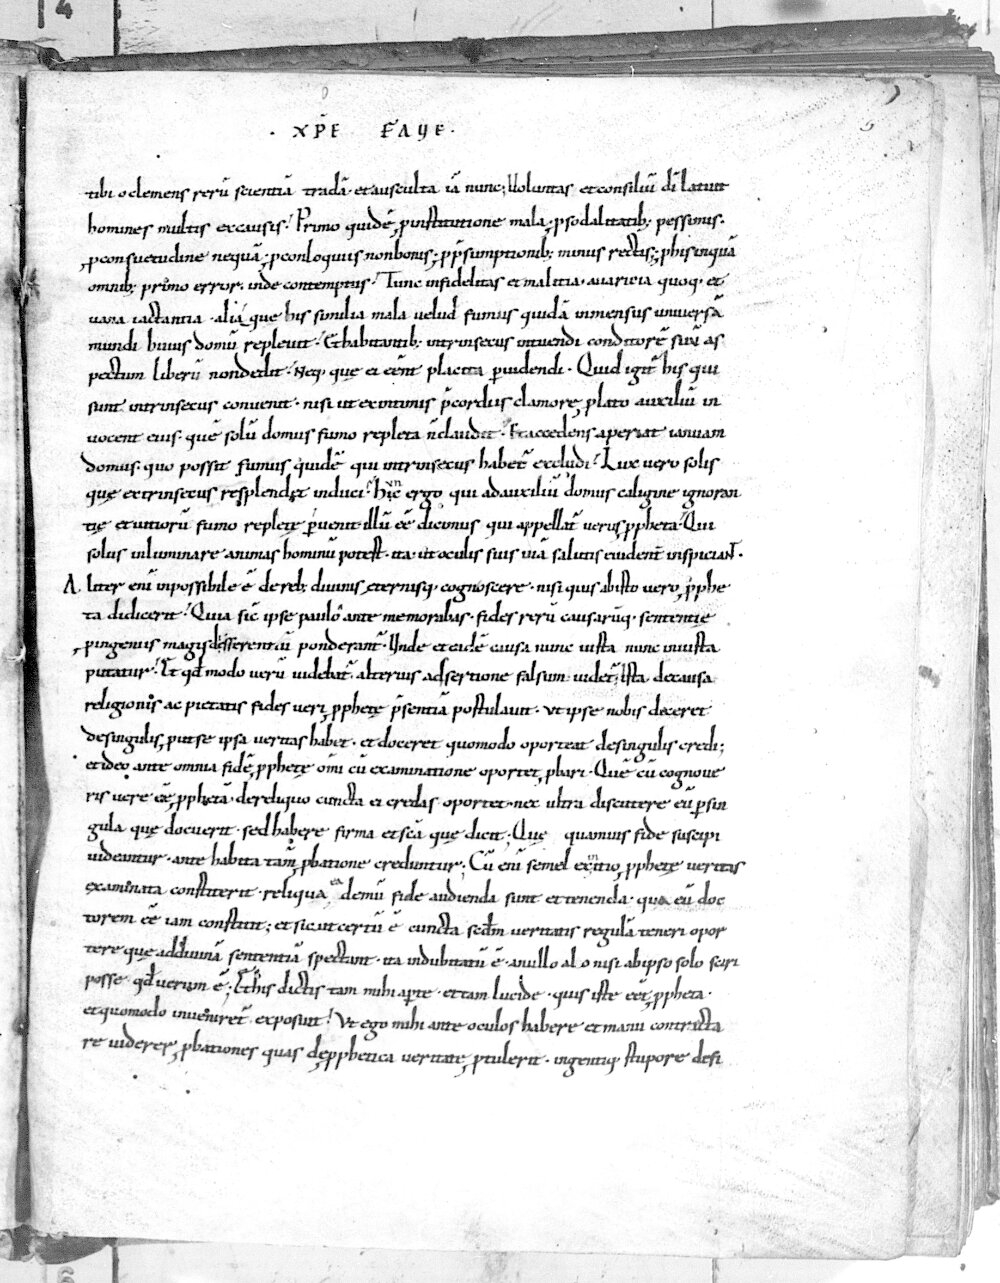 · XP̄E FAVE ·
tibi o clemens rerū scientiā tradā · et ausculta iā nunc; Uoluntas et consiliū dī latuit
homines multis ex causis! Primo quidē ꝓ institutione mala, ꝓ sodalitatib; pessimis·
ꝓ consuetudine nequā, ꝓ conloquiis non bonis; ꝓ p̄sumptionib; minus rectis; ꝓ his inquā
omnib; primo error· inde contemptus! Tunc infidelitas et malitia· auaricia quoq· et
uana iactantia · aliáque his similia mala uelud fumus quidā inmensus uniuersā
mundi huius domū repleuit · Et habitantib; intrinsecus intuendi conditorē suū as
pectum liberū non dedit · Neq; quę ei eēnt placita ꝑuidendi · Quid igit̄ his qui
sunt intrinsecus conuenit· nisi ut ex intimis p̄cordiis clamore ꝓlato auxiliū in
uocent eius· quē solū domus fumo repleta n̄ claudit · Et accedens aperiat ianuam
domus· quo possit fumus quidē qui intrinsecus habet̄ excludi! Lux uero solis
quę extrinsecus resplendet induci! hic ergo qui ad auxiliū domus caligine ignoran
tię et uitiorū fumo repletę ꝑuenit illū eē dicimus qui appellat̄ uerus ꝓpheta· Qui
solus inluminare animas hominū potest· ita ut oculis suis uiā salutis euident̄ inspiciant̄·
Aliter enī inpossibile ē de reb; diuinis, eternisq; cognoscere· nisi quis ab isto uero ꝓphe
ta didicerit! Quia sic̄ ipse paulo ante memorabas· fides rerū causarūq; sententię
ꝓ ingeniis magis disserentiū ponderant̄· Unde et eadē causa nunc iusta nunc iniusta
putatur! Et qđ modo uerū uidebat̄ alterius adsertione falsum uidet̄; Ista de causa
religionis ac pietatis fides ueri ꝓphetę p̄sentiā postulauit· ut ipse nobis diceret
de singulis, ut se ipsa ueritas habet· et doceret quomodo oporteat de singulis credi;
et ideo ante omnia fidē ꝓphetę om̄i cū examinatione oportet ꝓbari· Quē cū cognoue
ris uere eē ꝓphetā· de reliquo cuncta ei credas oportet· nec ultra discutere eū ꝑ sin
gula quę docuerit· sed habere firma et sc̄a quę dicit; Quę quamuis fide suscipi
uideantur· ante habita tam̄ ꝓbatione creduntur; Cū enī semel ex initio ꝓphetę ueritas
examinata constiterit· reliqua demū fide audienda sunt et tenenda· qua eū doc
torem eē iam constitit; et sicut certū ē cuncta secđm ueritatis regulā teneri opor
tere quę ad diuinā sententiā spectant· ita indubitatū ē· a nullo alio nisi ab ipso solo sciri
posse qđ uerum ē; Et his dictis tam mihi aꝑte· et tam lucide· quis iste eēt ꝓpheta·
et quomodo inueniret̄ exposuit! Vt ego mihi ante oculos habere et manu contracta
re uiderer, ꝓbationes quas de ꝓphetica ueritate ꝓtulerit· ingentiq; stupore defi